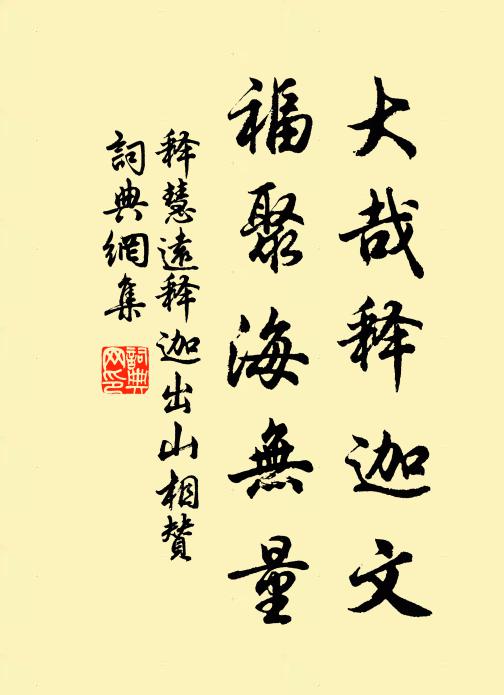 大哉释迦文
福聚海無量
释慧遠释迦出山相贊
詞典網集
詞典
网印